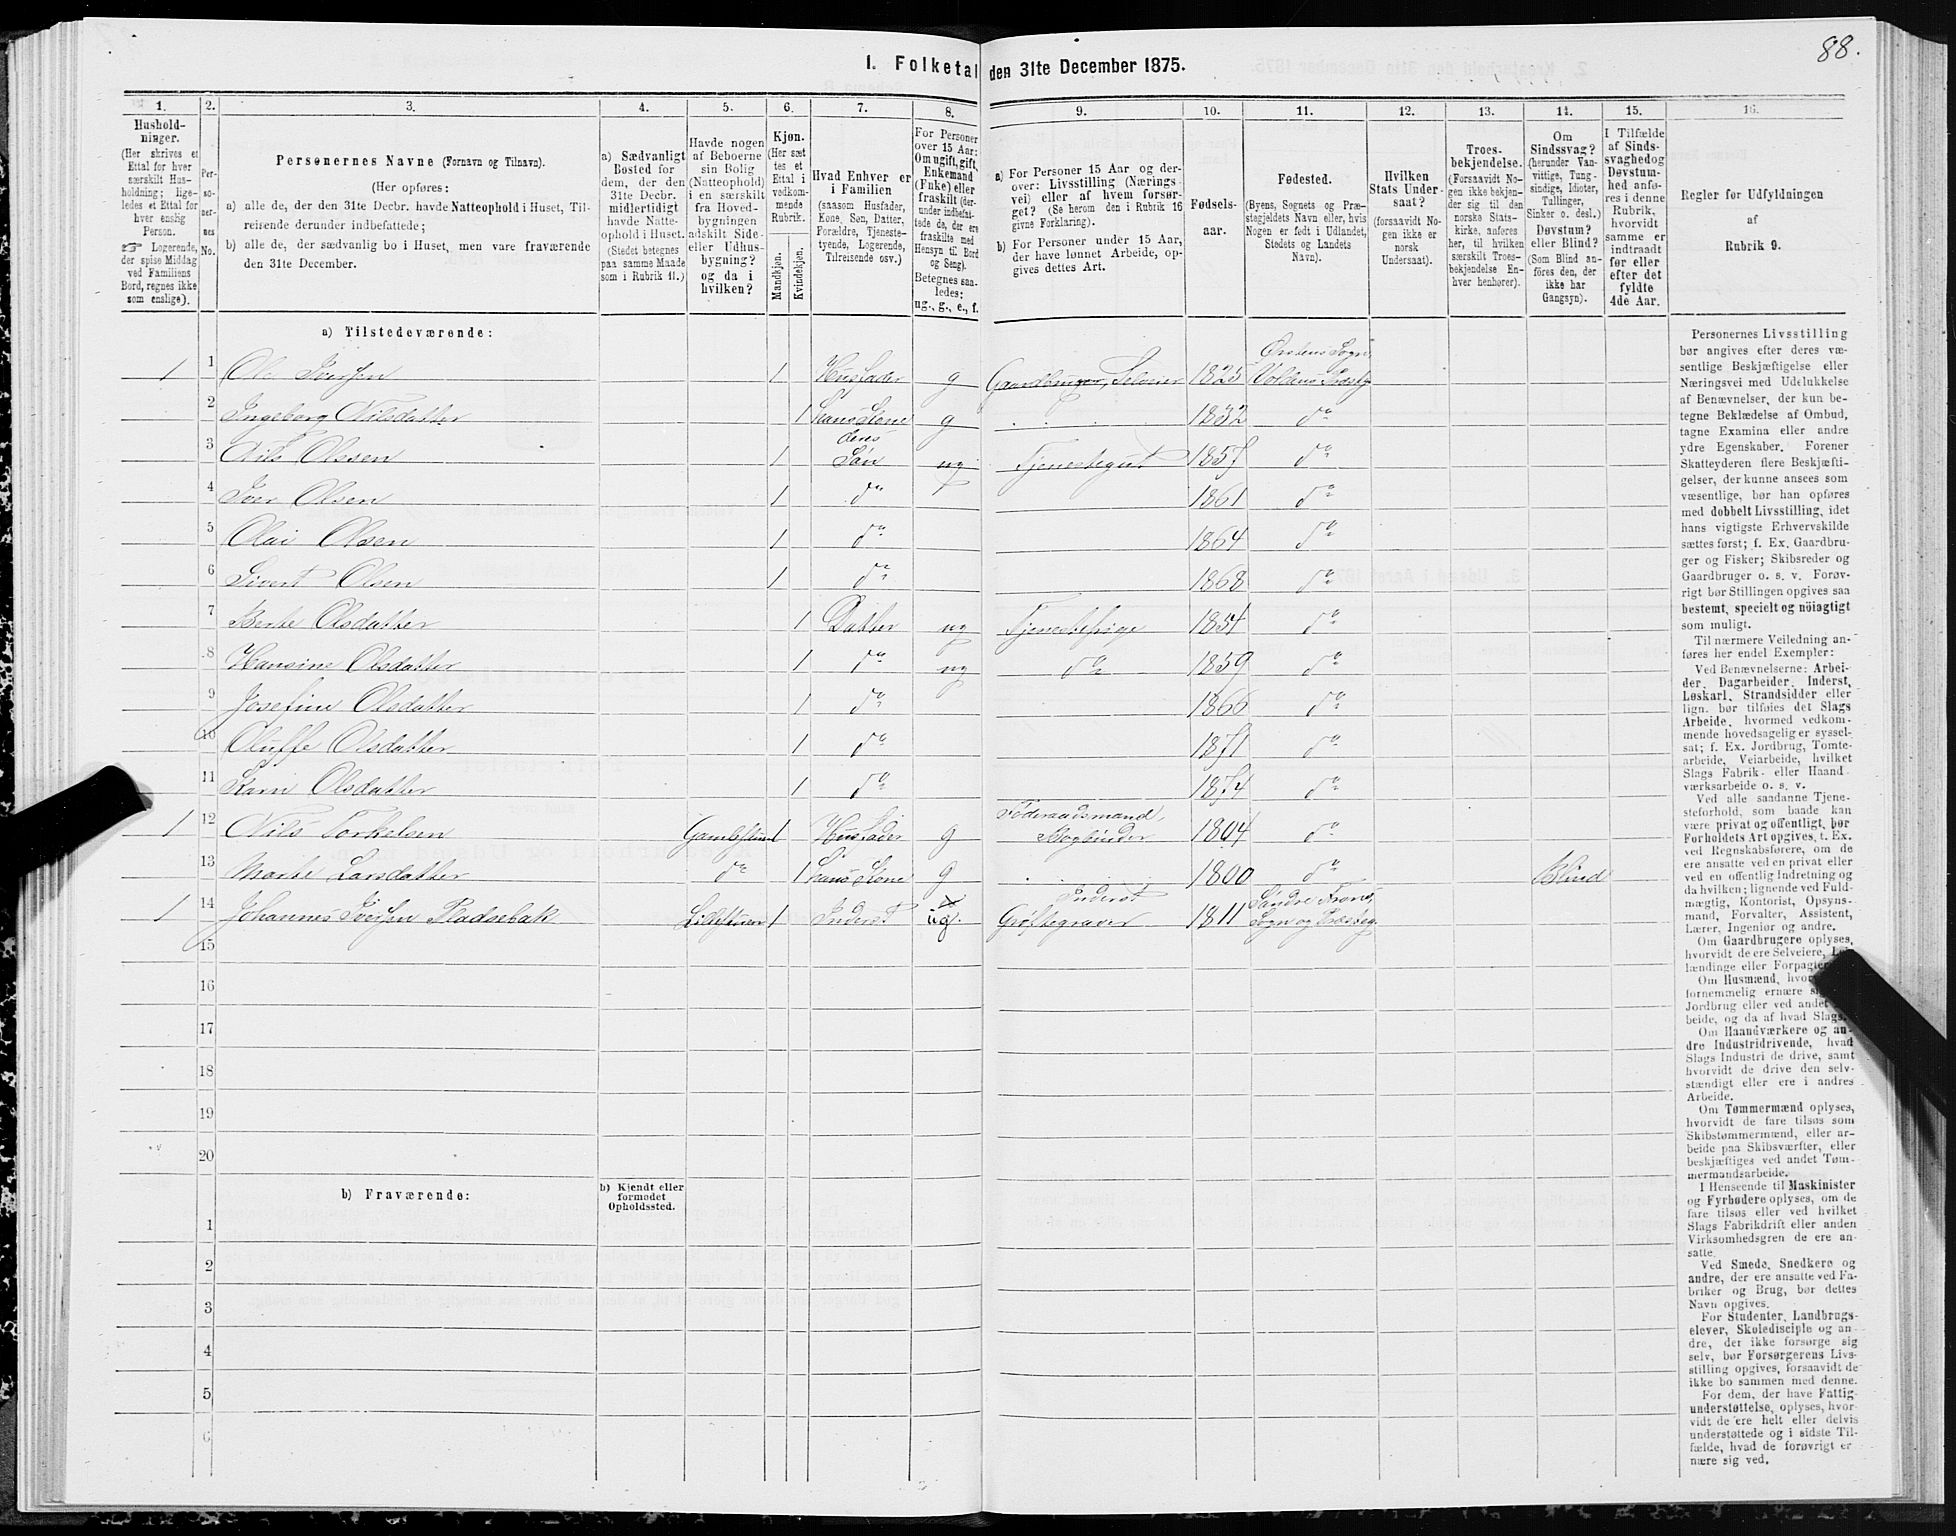 88.
1. Folketal den 31te December 1875.
1. 2. 3. 4. 5. 6. 7. 8. 9. 10. 11. 12. 13. 14. 15. 16.
Hushold-
ninger.
(Her skrives et
Ettal for hver
særskilt Hus-
holdning; lige-
ledes et Ettal for
hver enslig
Person.
☞ Logerende,
der spise Middag
ved Familiens
Bord, regnes ikke
som enslige).
Per-
so-
ner-
nes
No.
Personernes Navne (Fornavn og Tilnavn).
(Her opføres:
a) alle de, der den 31te Decbr. havde Natteophold i Huset, Til-
reisende derunder indbefattede;
b) alle de, der sædvanlig bo i Huset, men vare fraværende
den 31te December.
a) Sædvanligt
Bosted for
dem, der den
31te Decbr.
midlertidigt
havde Natte-
ophold i Huset.
(Stedet betegnes
paa samme Maade
som i Rubrik 11.)
Havde nogen
af Beboerne
sin Bolig
(Natteophold)
i en særskilt
fra Hoved-
bygningen
adskilt Side-
eller Udhus-
bygning?
og da i
hvilken?
Kjøn.
(Her sæt-
tes et
Ettal i
vedkom-
mende
Rubrik.
Mandkjøn.
Kvindekjøn.
Hvad Enhver er
i Familien
(saasom Husfader,
Kone, Søn, Datter,
Forældre, Tjeneste-
tyende, Logerende,
Tilreisende osv.)
For Personer
over 15 Aar:
Om ugift, gift,
Enkemand
(Enke) eller
fraskilt (der-
under indbefat-
tede de, der ere
fraskilte med
Hensyn til Bord
og Seng).
Betegnes saa-
ledes:
ug., g., e., f.
a) For Personer 15 Aar og der-
over: Livsstilling (Nærings-
vei) eller af hvem forsør-
get? (Se herom den i Rubrik 16
givne Forklaring).
b) For Personer under 15 Aar,
der have lønnet Arbeide, op-
gives dettes Art.
Fødsels-
aar.
Fødested.
(Byens, Sognets og Præ-
stegjeldets Navn eller, hvis
Nogen er født i Udlandet,
Stedets og Landets
Navn).
Hvilken
Stats Under-
saat?
(forsaavidt No-
gen ikke er
norsk
Undersaat).
Troes-
bekjendelse.
(Forsaavidt No-
gen ikke bekjen-
der sig til den
norske Stats-
kirke, anføres
her, til hvilken
særskilt Troes-
bekjendelse En-
hver henhører).
Om
Sindssvag?
(herunder Van-
vittige, Tung-
sindige, Idioter,
Tullinger,
Sinker o. desl.)
Døvstum?
eller Blind?
(Som Blind an-
føres den, der
ikke har
Gangsyn).
I Tilfælde
af Sinds-
svaghed og
Døvstum-
hed anfø-
res i denne
Rubrik,
hvorvidt
samme er
indtraadt
før eller
efter det
fyldte
4de Aar.
Regler før Udfyldningen
af
Rubrik 9.
a) Tilstedeværende:
Ørstens Sogn,
1 1 Ole Iversen 1 Husfader g Gaardbruger, Selveier 1825 Voldens Præstg
2 Ingeborg Nilsdatter 1 hans Kone g 1832 do
deres
3 Nils Olssen 1 Søn ug Tjenestegut 1857 do
4 Iver Olsen 1 do 1861 do
5 Olai Olsen 1 do 1864 do
6 Sivert Olsen 1 do 1868 do
7 Berte Olsdatter 1 Datter ug Tjenestepige 1854 do
8 Hansine Olsdatter 1 do ug do 1859 do
9 Josefine Olsdatter 1 do 1866 do
10 Oluffe Olsdatter 1 do 1871 do
11 Karn Olsdatter 1 do 1874 do
Føderaadsmand,
1 12 Nils Torkelsen Gamlestuen 1 Husfader g Bogbinder 1804 do
13 Marte Larsdatter do 1 hans Kone g 1800 do Blind
Inderst Søndre Frons,
1 14 Johannes Iversen Pladsebak Lillestuen 1 Inderst ug. Grøftegraver 1811 Sogn og Præsteg.
15
16
17
18
19
20
b) Fraværende:
b) Kjendt eller
formodet
Opholdssted.
1
2
3
4
5
6
Personernes Livsstilling
bør angives efter deres væ-
sentlige Beskjæftigelse eller
Næringsvei med Udelukkelse
af Benævnelser, der kun be-
tegne Beklædelse af Ombud,
tagne Examina eller andre
ydre Egenskaber. Forener
Skatteyderen flere Beskjæfti-
gelser, der kunne ansees som
væsentlige, bør han opføres
med dobbelt Livsstilling, idet
hans vigtigste Erhvervskilde
sættes først; f. Ex. Gaardbru-
ger og Fisker; Skibsreder og
Gaardbruger o. s. v. Forøv-
rigt bør Stillingen opgives saa
bestemt, specielt og nöiagtigt
som muligt.
Til nærmere Veiledning an-
føres her endel Exempler:
Ved Benævnelserne: Arbei-
der, Dagarbeider, Inderst,
Løskarl, Strandsidder eller
lign. bør tilføies det Slags
Arbeide, hvormed vedkom-
mende hovedsagelig er syssel-
sat; f. Ex. Jordbrug, Tomte-
arbeide, Veiarbeide, hvilket
Slags Fabrik- eller Haand-
værksarbeide o. s. v.
Ved alle saadanne Tjene-
steforhold, som baade kan
være privat og offentligt, bør
Forholdets Art opgives, t. Ex.
ved Regnskabsførere, om de
ere ansatte ved en privat eller
ved en offentlig Indretning og
da hvilken; lignende ved Fuld-
mægtig, Kontorist, Opsyns-
mand, Forvalter, Assistent,
Lærer, Ingeniør og andre.
Om Gaardbrugere oplyses,
hvorvidt de ere Selveiere, Lei-
lændinge eller Forpagtere.
Om Husmænd, hvor
fornemmelig ernære si
Jordbrug eller ved andet
beide, og da af hvad Slags.
Om Haandværkere og an-
dre Industridrivende, hvad
Slags Industri de drive, samt
hvorvidt de drive den selv-
stændigt eller ere i andres
Arbeide.
Om Tømmermænd oplyses,
hvorvidt de fare tilsøs som
Skibstømmermænd, eller ar-
beide paa Skibsværfter, eller
beskjæftiges ved andet Tøm-
mermandsarbeide.
I Henseende til Maskinister
og Fyrbødere oplyses, om de
fare tilsøs eller ved hvilket
Slags Fabrikdrift eller anden
Virksomhedsgren de ere an-
satte.
Ved Smede, Snedkere og
andre, der ere ansatte ved Fa-
briker og Brug, bør dettes
Navn opgives.
For Studenter, Landbrugs-
elever, Skoledisciple og an-
dre, der ikke forsørge sig
selv, bør Forsørgerens Livs-
stilling opgives, forsaavidt de
ikke bo sammen med denne.
For dem, der have Fattig-
understøttelse, oplyses, hvor-
vidt de ere helt eller delvis
understøttede og i sidste Til-
fælde, hvad de forøvrigt er-
nære sig ved.